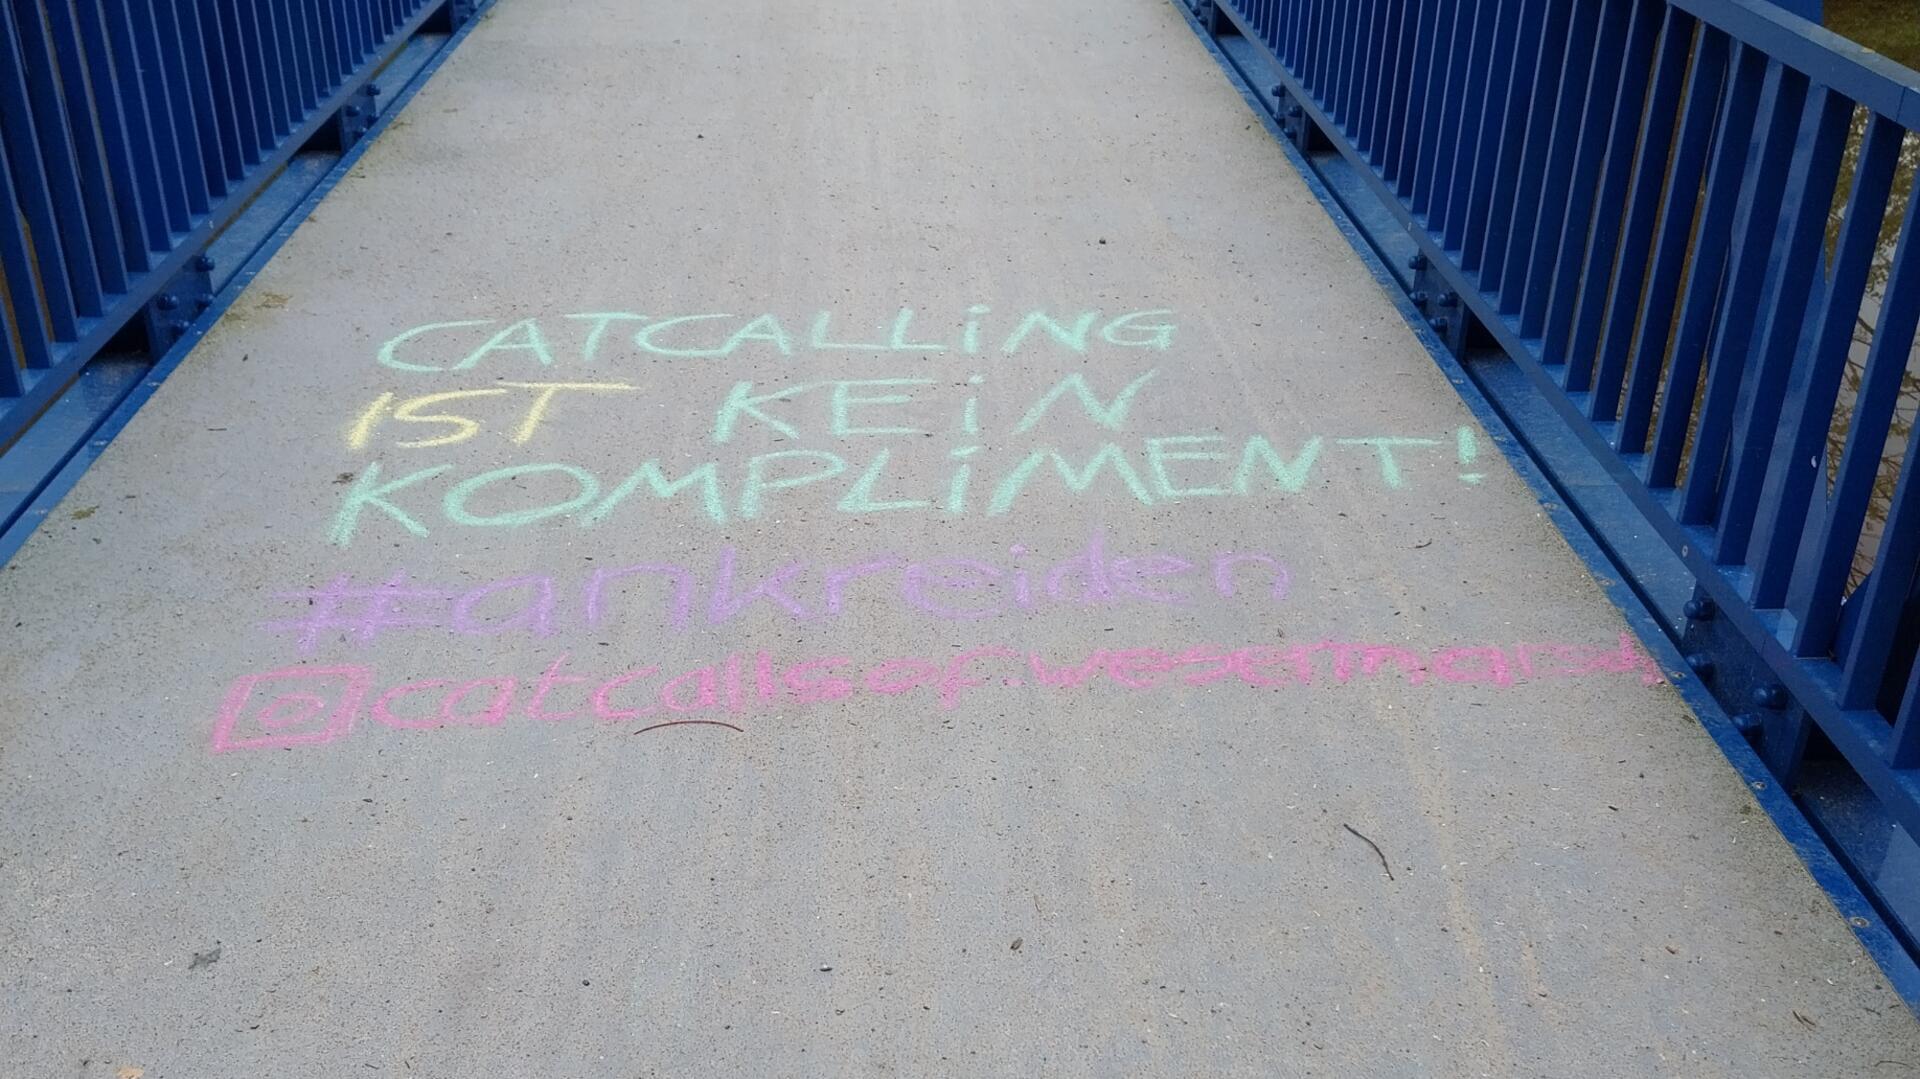 CATCALLiNG
IST KEiN
KOMPLiMENT!
#ankreiden
catcallsof.wesermarsch